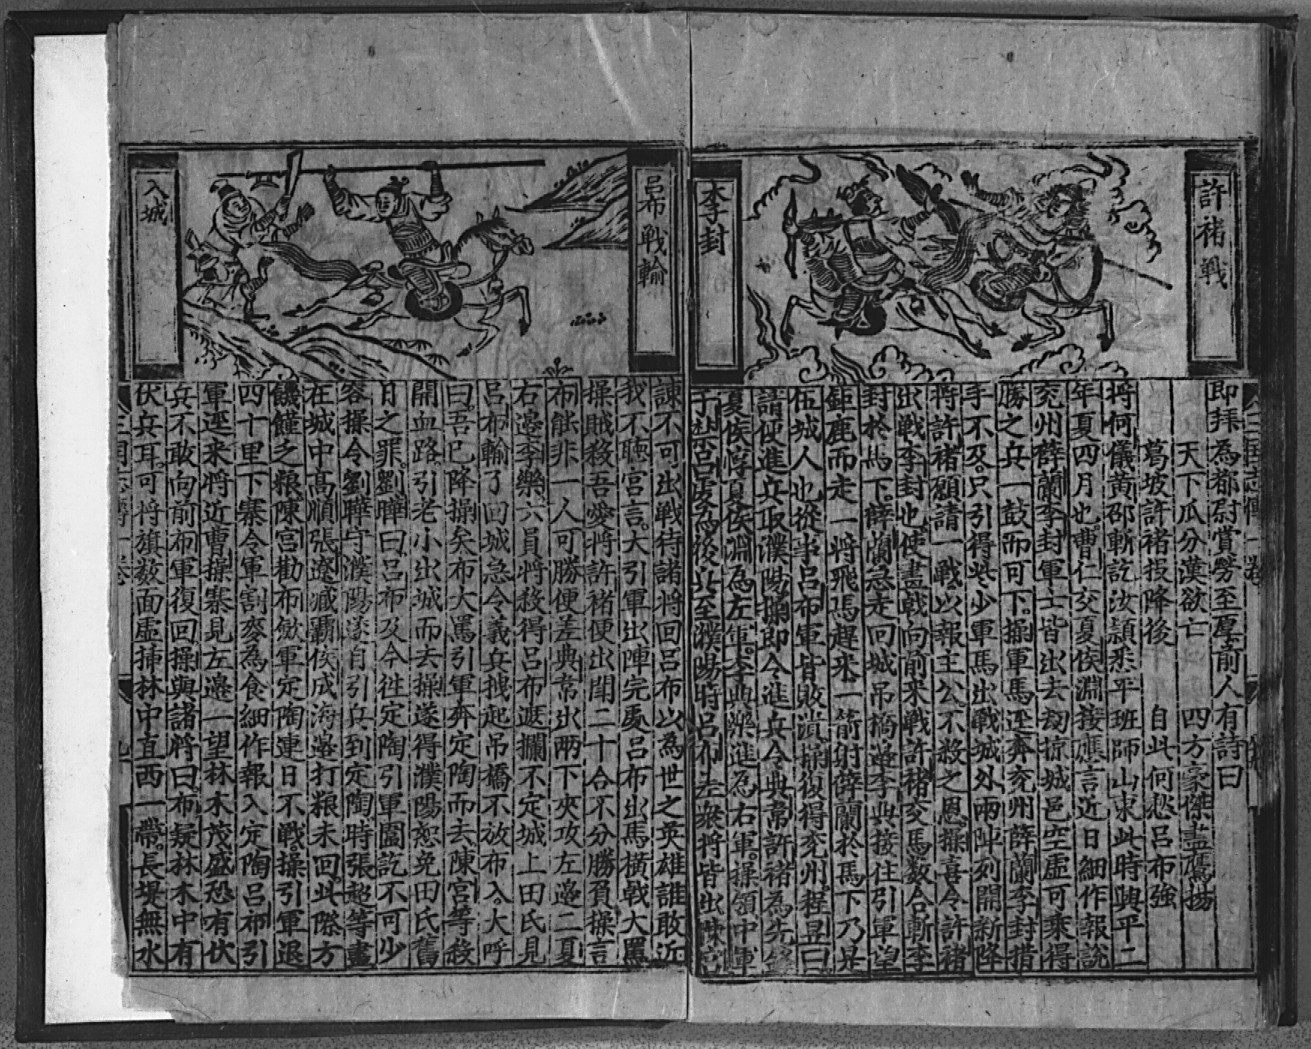 許褚戰
李封
即拜為都尉賞勞至厚前人有詩曰
天下瓜分漢欲亡 四方豪傑盡鷹揚
葛坡許褚投降後 自此何愁呂布強
將何儀黃邵斬訖汝潁悉平班師山東此時興平二
年夏四月也曹仁交夏侯淵接應言近日細作報說
兗州薛蘭李封軍士皆出去刼掠城邑空虛可乘得
勝之兵一鼓而可下操軍馬逕奔兗州薛蘭李封措
手不及只引得些少軍馬出戰城外兩陣列開新降
將許褚願請一戰以報主公不殺之恩操喜令許褚
出戰李封也使畫戟向前來戰許褚交馬数合斬李
封於馬下薛蘭急走回城吊橋邊李典接住引軍望
鉅鹿而走一將飛馬趕來一箭射薛蘭於馬下乃是
伍城人也從事呂布軍皆敗潰操復得兗州程昱曰
請便進兵取濮陽操即令進兵令典韋許褚為先鋒
夏侯惇夏侯淵為左軍李典樂進為右軍操領中軍
于禁呂虔為後比至濮陽時呂布左衆將皆出陳宮
呂布戰輸
入城
諫不可出戰待諸將回呂布以為世之英雄誰敢近
我不聽宮言大引軍出陣完處呂布出馬橫戟大罵
操賊殺吾愛將許褚便出閗二十合不分勝負操言
布能非一人可勝便差典韋出兩下夾攻左邉二夏
右邉李樂六員將殺得呂布遮攔不定城上田氏見
呂布輸了回城急令義兵拽起吊橋不放布入大呼
曰吾已降操矣布大罵引軍奔定陶而去陳宮等殺
開血路引老小出城而去操遂得濮陽恕免田氏舊
日之罪劉曄曰呂布及今往定陶引軍圍訖不可少
容操令劉曄守濮陽遂自引兵到定陶時張超等盡
在城中高順張遼臧霸侯成海邉打粮未回此際方
饑饉乏粮陳宮勸布斂軍定陶連日不戰操引軍退
四十里下寨令軍割麥為食細作報入定陶呂布引
軍逕來將近曹操寨見左邉一望林木茂盛恐有伏
兵不敢向前布軍復回操與諸將曰布疑林木中有
伏兵耳可將旗数面虛插林中直西一帶長堤無水